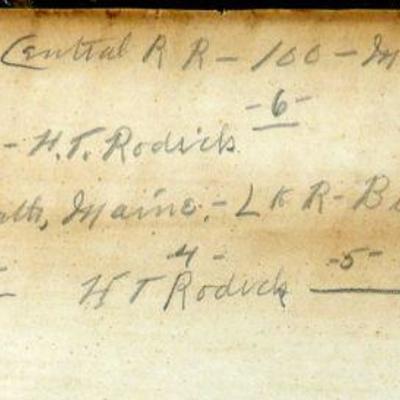 Central R R - 100 - M
- 6 -
- H. T. Rodick
Maine. - L K R - B
- 4 - - 5 -
H T Rodick